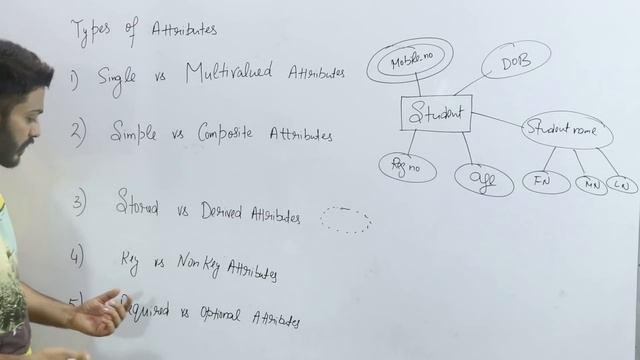 Types of Attributes
1) Single vs Multivalued Attributes
2) Simple vs Composite Attributes
3) Stored vs Derived Attributes
4) Key vs Non Key Attributes
5) Required vs Optional Attributes
Mobile no
DOB
Student
Student name
Reg no
age
FN
MN
LN